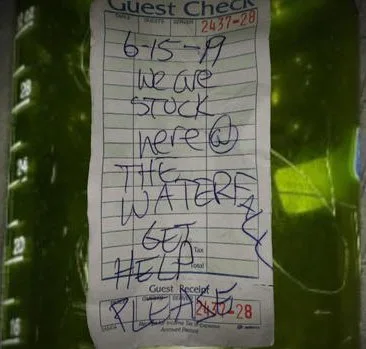 Guest Check
TABLE GUESTS SERVER 2437-28
6-15-19
we are
STUCK
here @
THE
WATERFALL
GET
Tax
HELP
Total
Guest Receipt
PLEASE
2437-28